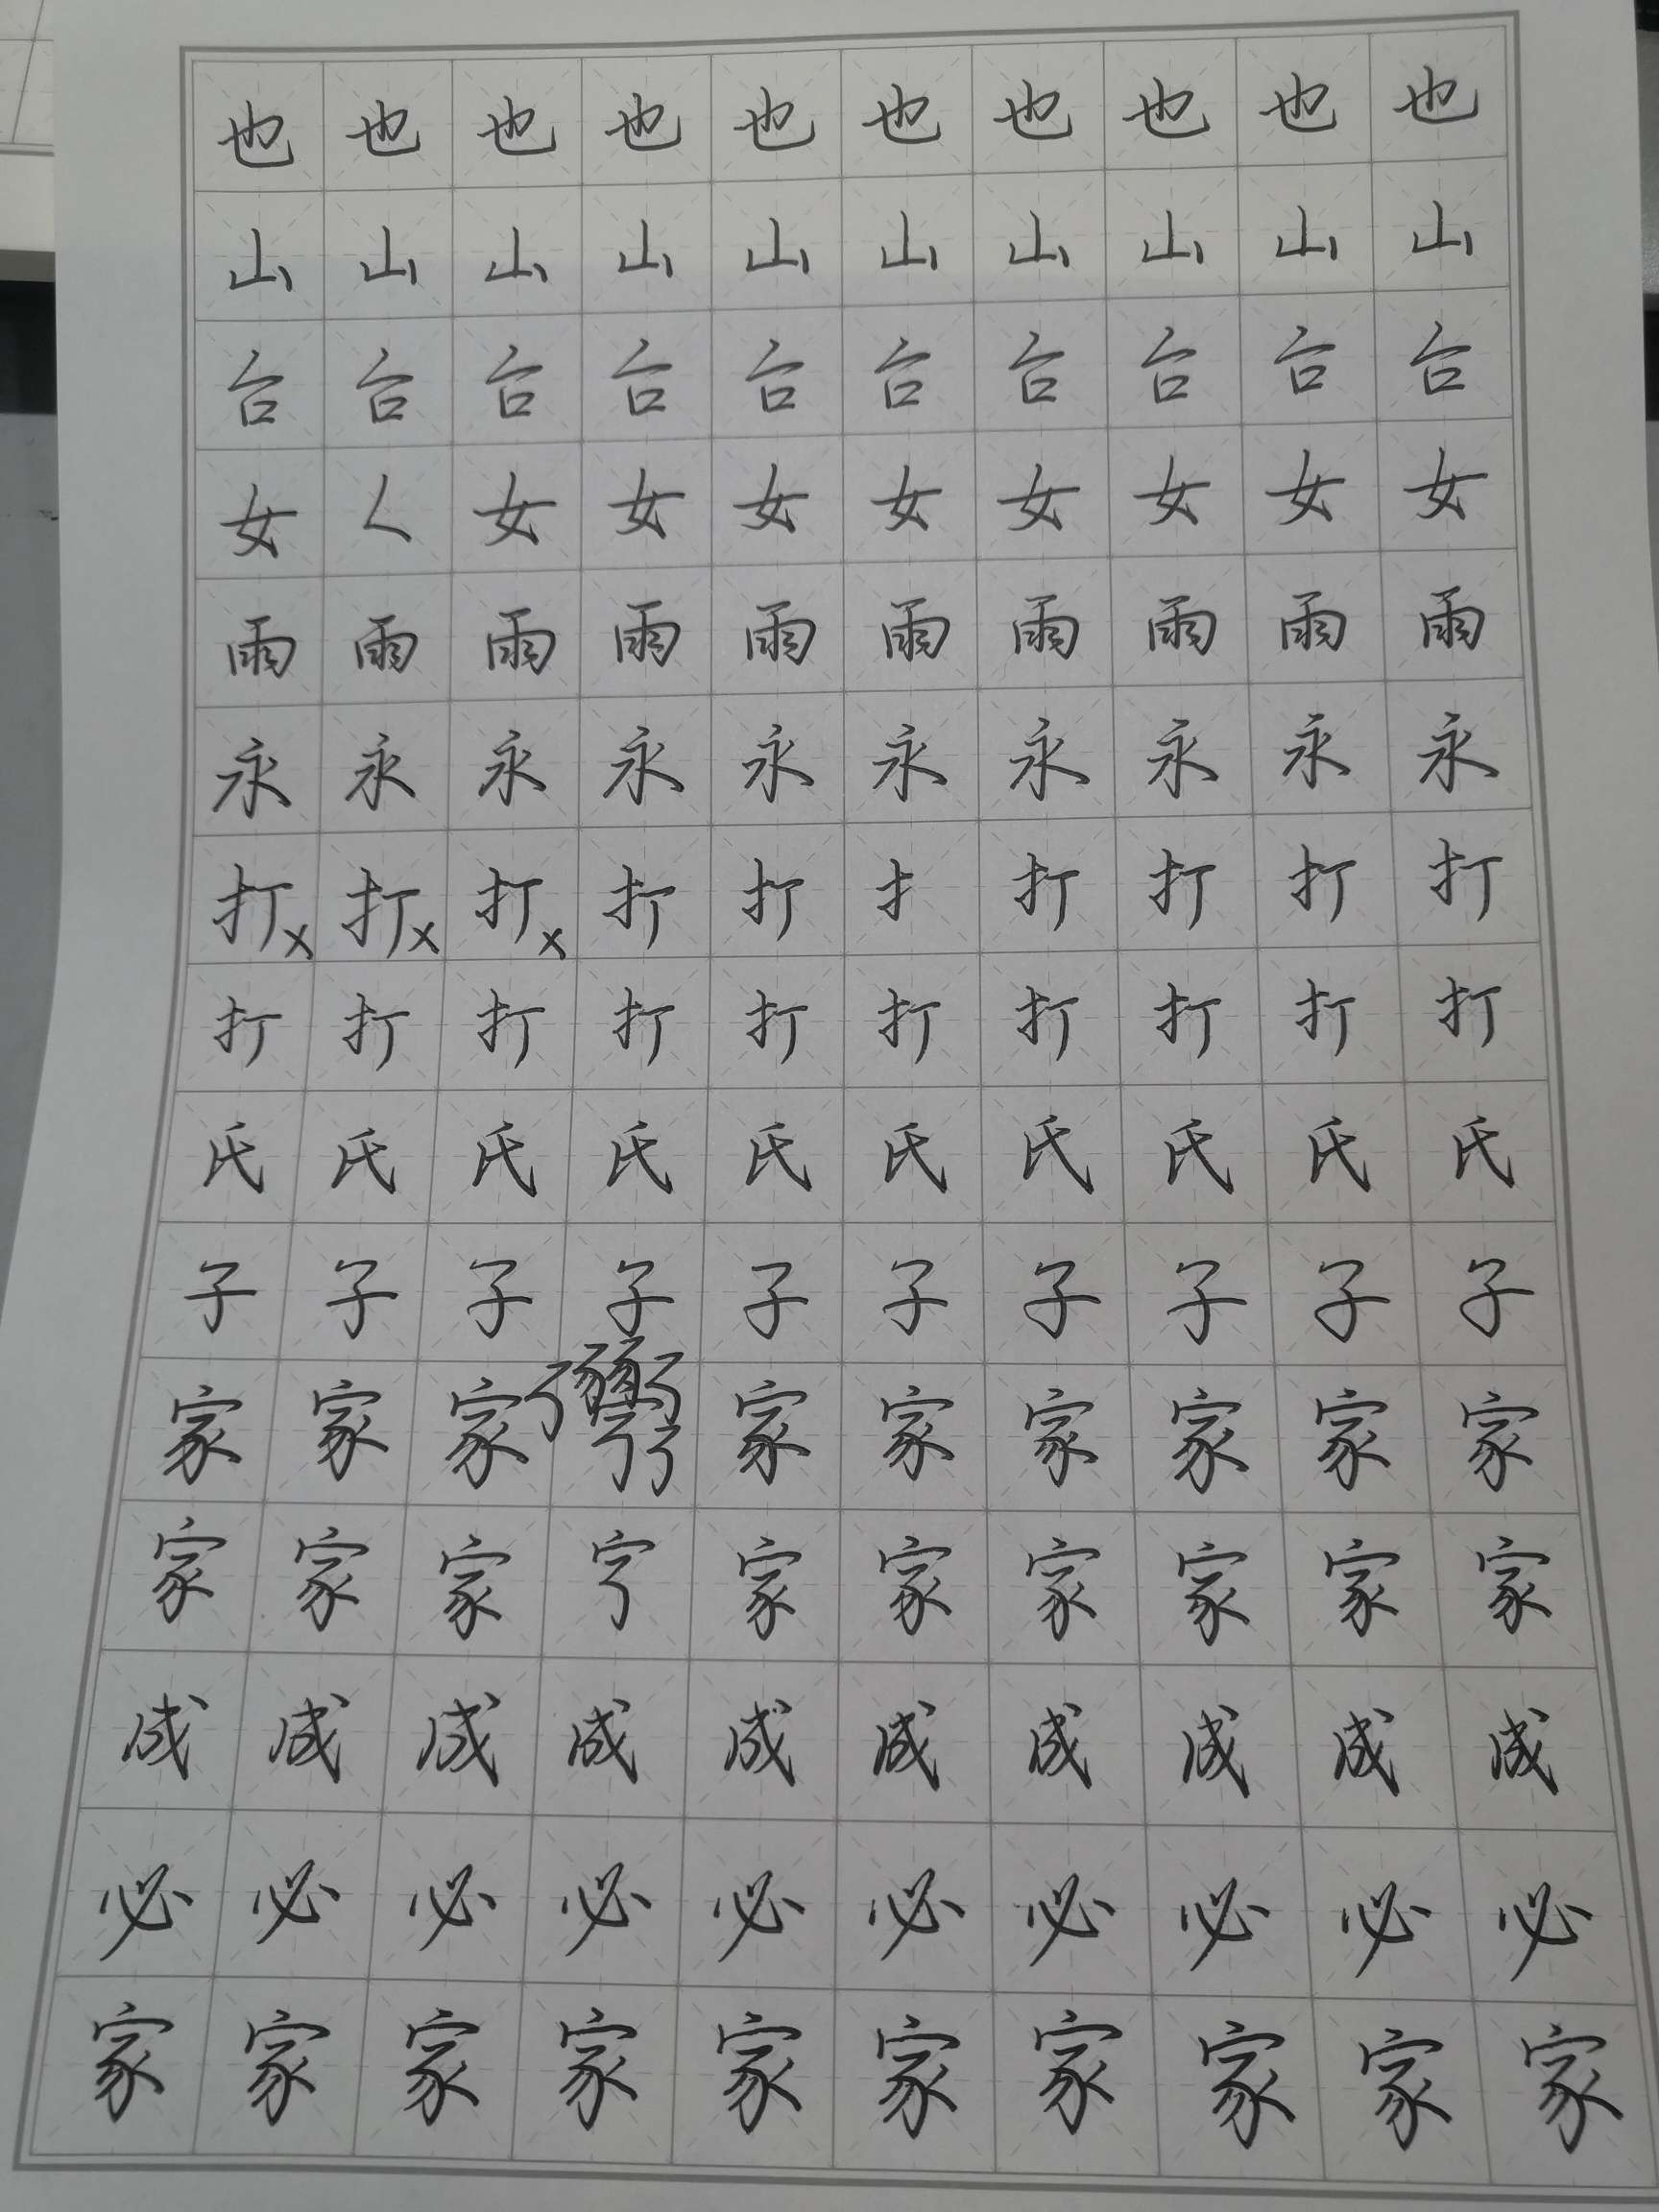 也也也也也也也也也也
山山山山山山山山山山
台台台台台台台台台台
女𡿨女女女女女女女女
雨雨雨雨雨雨雨雨雨雨
永永永永永永永永永永
打x打x打x打打扌打打打打
打打打打打打打打打打
氏氏氏氏氏氏氏氏氏氏
子子子子子子子子子子
家家家家家家家家家
家家家家家家家家家
成成成成成成成成成成
必必必必必必必必必必
家家家家家家家家家家